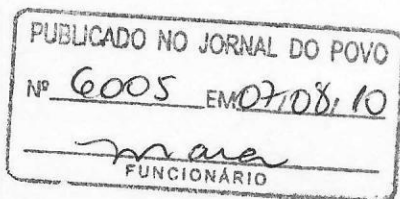 PUBLICADO NO JORNAL DO POVO
Nº 6005 EM 07,08,10
mara
FUNCIONÁRIO